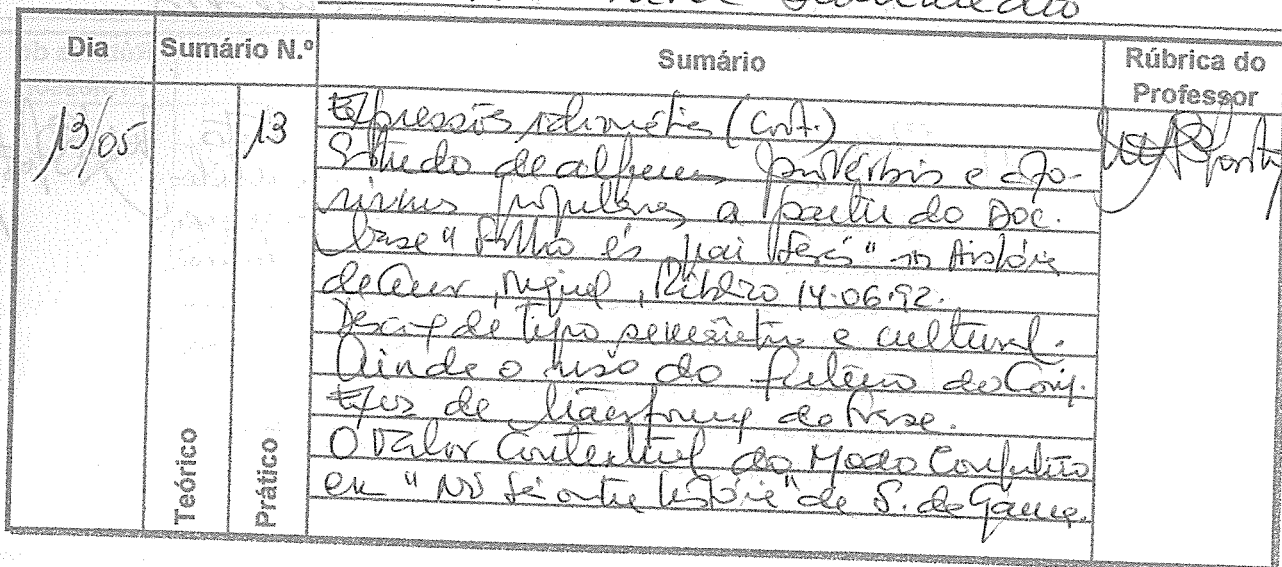 Dia Sumário N.º Sumário Rúbrica do Professor
13/05 13 Expressões idiomáticas (Cont.)
Estudo de alguns provérbios e afo-
rismos populares a partir do Doc.
base "Filho és pai serás" in História
de , Miguel, Ribeiro 14.06.92.
de tipo semântico e cultural.
Ainda o uso do futuro do Conj.
Exos de transform. da frase.
O Valor Contextual do Modo Conjuntivo
em " outra história" de S. da Gama.
Teórico
Prático